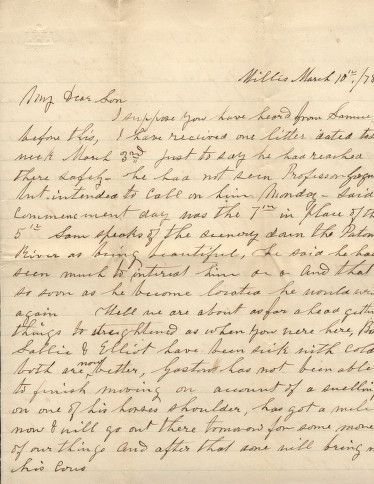 Willis March 10th /78
My Dear Son
I suppose you have heard from Samuel
before this, I have received one letter dated
March 3rd just to say he had reached
there safely - he had not seen Professor
but intended to call on him Monday - said
Commencement day was the 7th in place of the
5th Sam speaks of the scenery down the
River as being beautiful, he said he had
seen much to interest him And that
so soon as he become located he would
again Well we are about as far ahead
things to streightend as when you were here,
Sallie & Elliot have been sick with cold
both are now better, Gaston has not been able
to finish moving on account of a swelling
on one of his horses shoulder, has got a
now & will go out there tomorrow for some more
of our things And after that some will bring
his cows